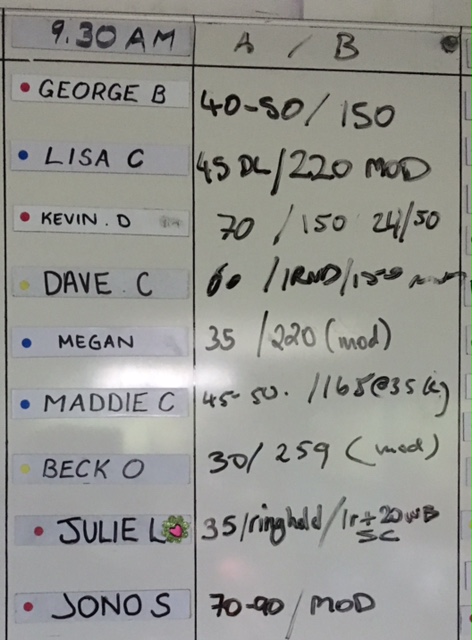 9.30 AM A / B
GEORGE B 40-50 / 150
LISA C 45 DL / 220 MOD
KEVIN . D 70 / 150 24/50
DAVE C 60 / 1RND / 150
MEGAN 35 / 220 (mod)
MADDIE C 45-50. / 165@35kg
BECK O 30 / 259 (mod)
JULIE L 35 / ringheld / 1r + 20 WB
SC
JONO S 70-90 / MOD